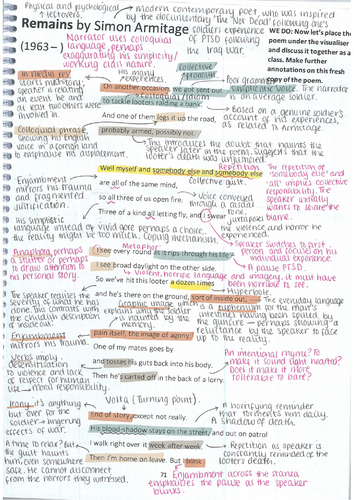 Physical and psychological leftovers.
modern contemporary poet, who was inspired
by the documentary 'The Not Dead' following one's
Remains by Simon Armitage
soldiers experience
of PTSD following
the Iraq war.
(1963– )
Narrator uses colloquial
language, perhaps
exaggerating his simplicity/
working class nature.
WE DO: Now let's place the
poem under the visualiser
and discuss it together as a
class. Make further
annotations on this fresh
copy of the poem.
In media res
starts midstory;
speaker is relating
an event he and
at least two others were
involved in.
His many
Collective
pronoun.
Poor grammar
The narrator
is an average soldier.
On another occasion, we got sent out
to tackle looters raiding a bank.
And one of them legs it up the road,
probably armed, possibly not.
Based on a genuine soldier's
account of his experiences,
as related to Armitage.
Colloquial phrase
showing his English
voice in a foreign land
to emphasise his displacement.
This introduces the doubt that haunts the
speaker later in the poem. Suggests that the
looter's death was unjustified.
Well myself and somebody else and somebody else
are all of the same mind,
so all three of us open fire.
Three of a kind all letting fly, and I swear
Collective guilt.
Repetition
The repetition of
"somebody else" and
"all" implies collective
responsibility. The
speaker initially
wants to share the
blame.
Voice conveyed
through a casual
tone,
juxtaposes
the violence and horror he
experienced.
Enjambment
mirrors his trauma
and fragmented
justification.
His simplistic
language instead of vivid gore perhaps a choice.
The reality might be too much. Coping mechanism.
Speaker switches to first
person and focuses on his
individual experience.
A pause PTSD.
Anaphora, perhaps
a stutter or perhaps
to draw attention to
his personal story.
Metaphor
I see every round as it rips through his life –
I see broad daylight on the other side.
violent, horrific language and imagery, it must have
been horrible to see.
So we've hit this looter a dozen times
Hyperbole
and he's there on the ground, sort of inside out,
The everyday language
is a euphemism for the man's
intestines having been spilled by
the gunfire – perhaps showing a
reluctance by the speaker to face
up to the reality.
The speaker realises the
severity of what he has
done. This contrasts with
the childish description
of 'inside out'.
Graphic image which
explains why the soldier
is haunted by the
memory.
pain itself, the image of agony.
One of my mates goes by
and tosses his guts back into his body.
Then he's carted off in the back of a lorry.
Enjambment
mirrors his trauma.
Verbs imply
desensitisation
to violence and lack
of respect for human
life – moral responsibility.
An intentional rhyme? To
make it sound light hearted?
Does it make it more
tolerable to bare?
Irony, it's anything
but over for the
soldier – lingering
effects of war.
Volta (Turning point).
End of story, except not really.
His blood-shadow stays on the street, and out on patrol
I walk right over it week after week.
Then I'm home on leave. But I blink
A horrifying reminder
that torments him daily.
A shadow of death.
Repetition as speaker is
constantly reminded of the
looters death.
A time to relax? But
the guilt haunts
him, even somewhere
safe. He cannot disconnect
from the horrors they witnessed.
71
Enjambment across the stanza
emphasises the pause as the speaker
blinks.